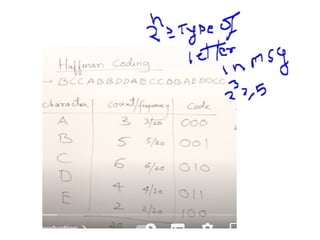 2^n ≥ Type of
letter
in msg
2^3 ≥ 5
Huffman Coding
BCCABBDDAECCBBAEDDCC
character count/frequency Code
A 3 3/20 000
B 5 5/20 001
C 6 6/20 010
D 4 4/20 011
E 2 2/20 100
20